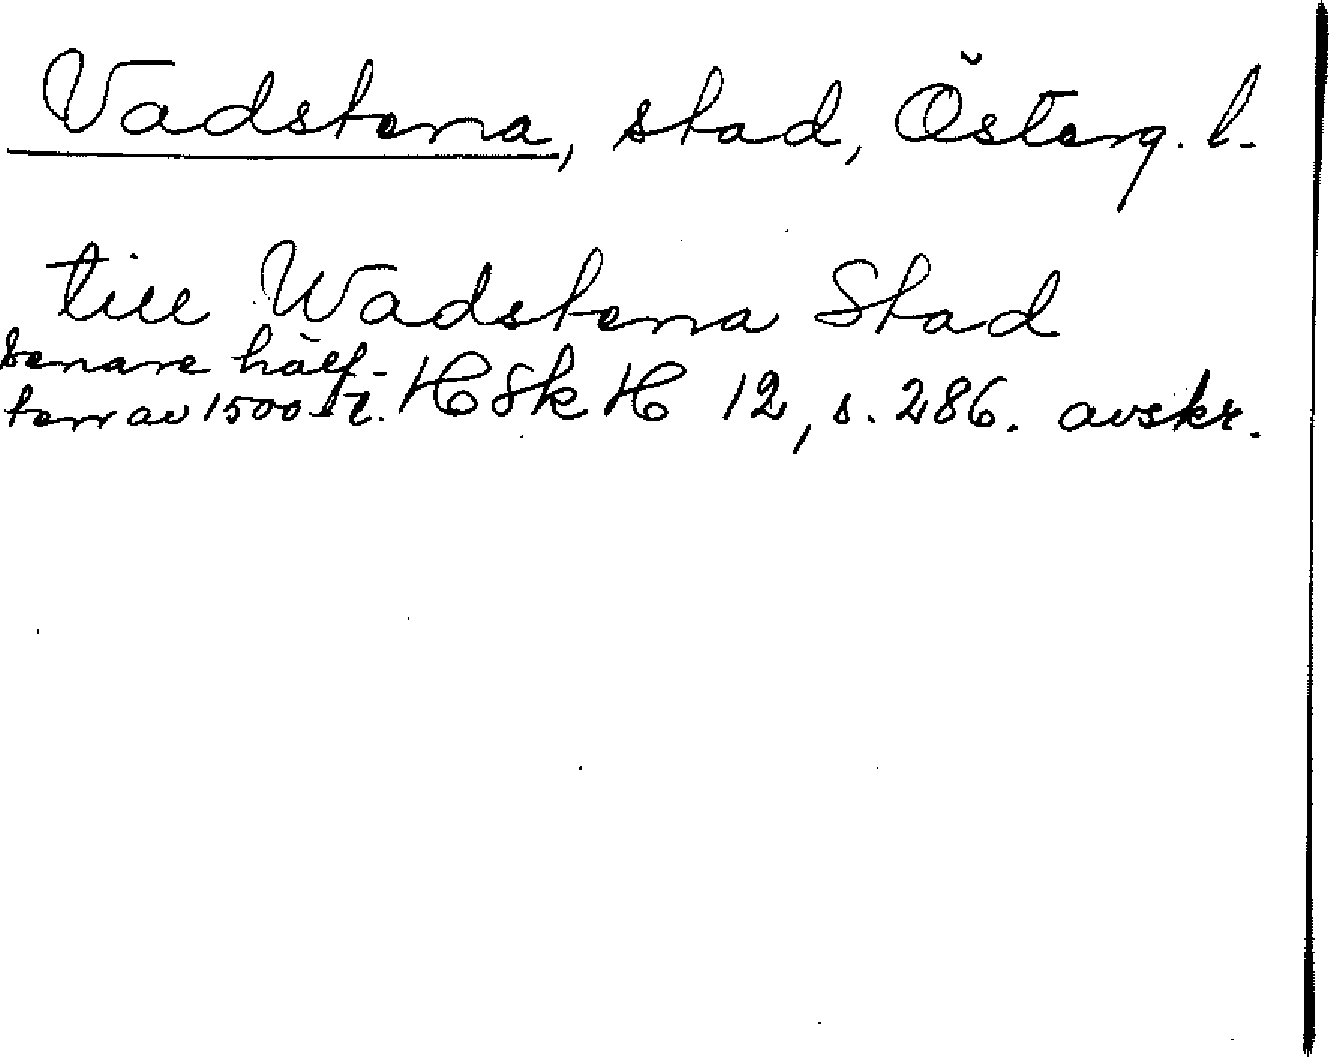 Vadstena, stad, Österg. l.
till Wadstena Stad
senare hälf-
ten av 1500-t. HSH H 12, s. 286. avskr.